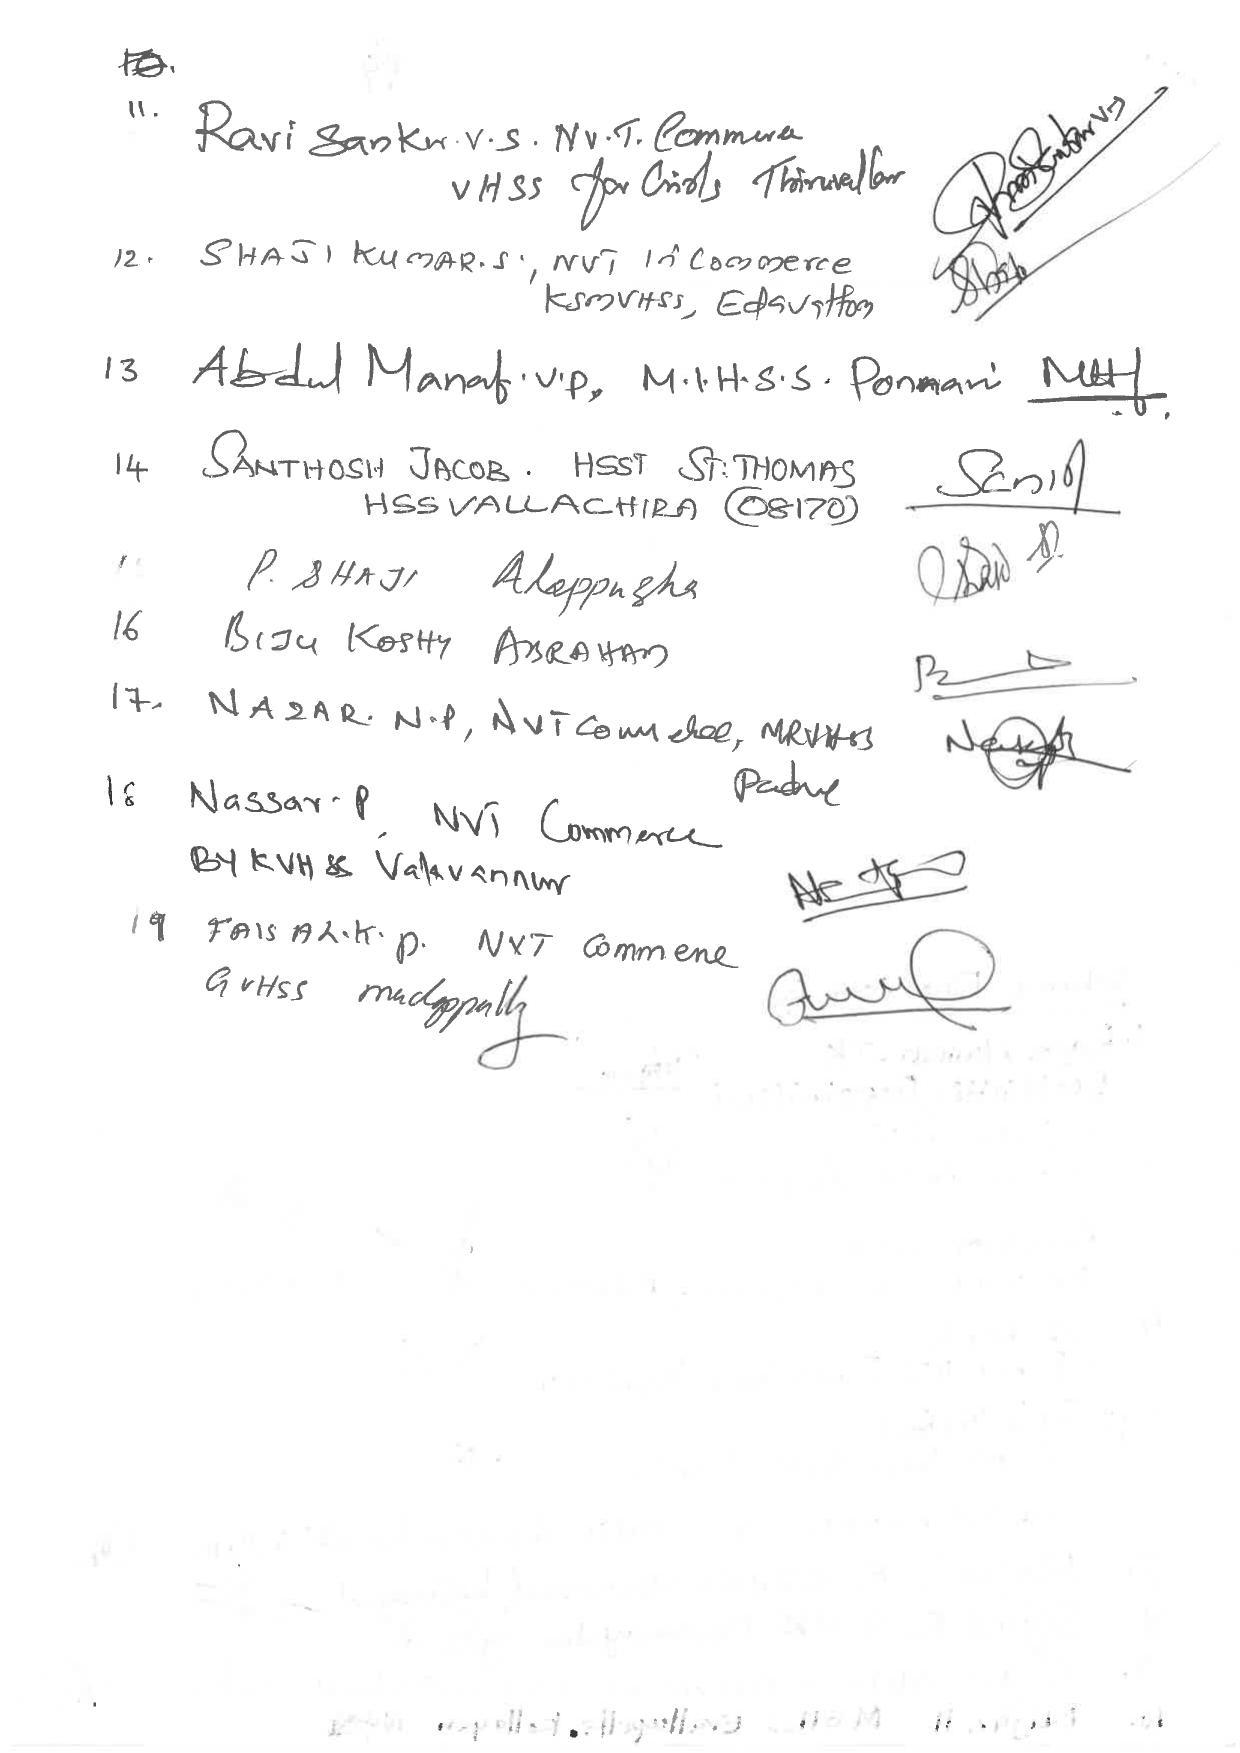 11. Ravi Sankar. V.S. N.V.T. Commerce
VHSS for Girls Thiruvalla
12. SHAJI KUMAR.S., NVT in Commerce
KSMVHSS, Edavattom
13 Abdul Manaf. V.P, M.I.H.S.S. Ponnani
14 SANTHOSH JACOB. HSST ST. THOMAS
HSS VALLACHIRA (08170)
P. SHAJI Alappuzha
16 BIJU KOSHY ABRAHAM
17. NAZAR. N.P, NVT Commerce, MRVHSS
Padne
18 Nassar. P, NVT Commerce
BYKVHSS Valavannur
19 FAISAL.K.P. NVT Commerce
GVHSS madappally